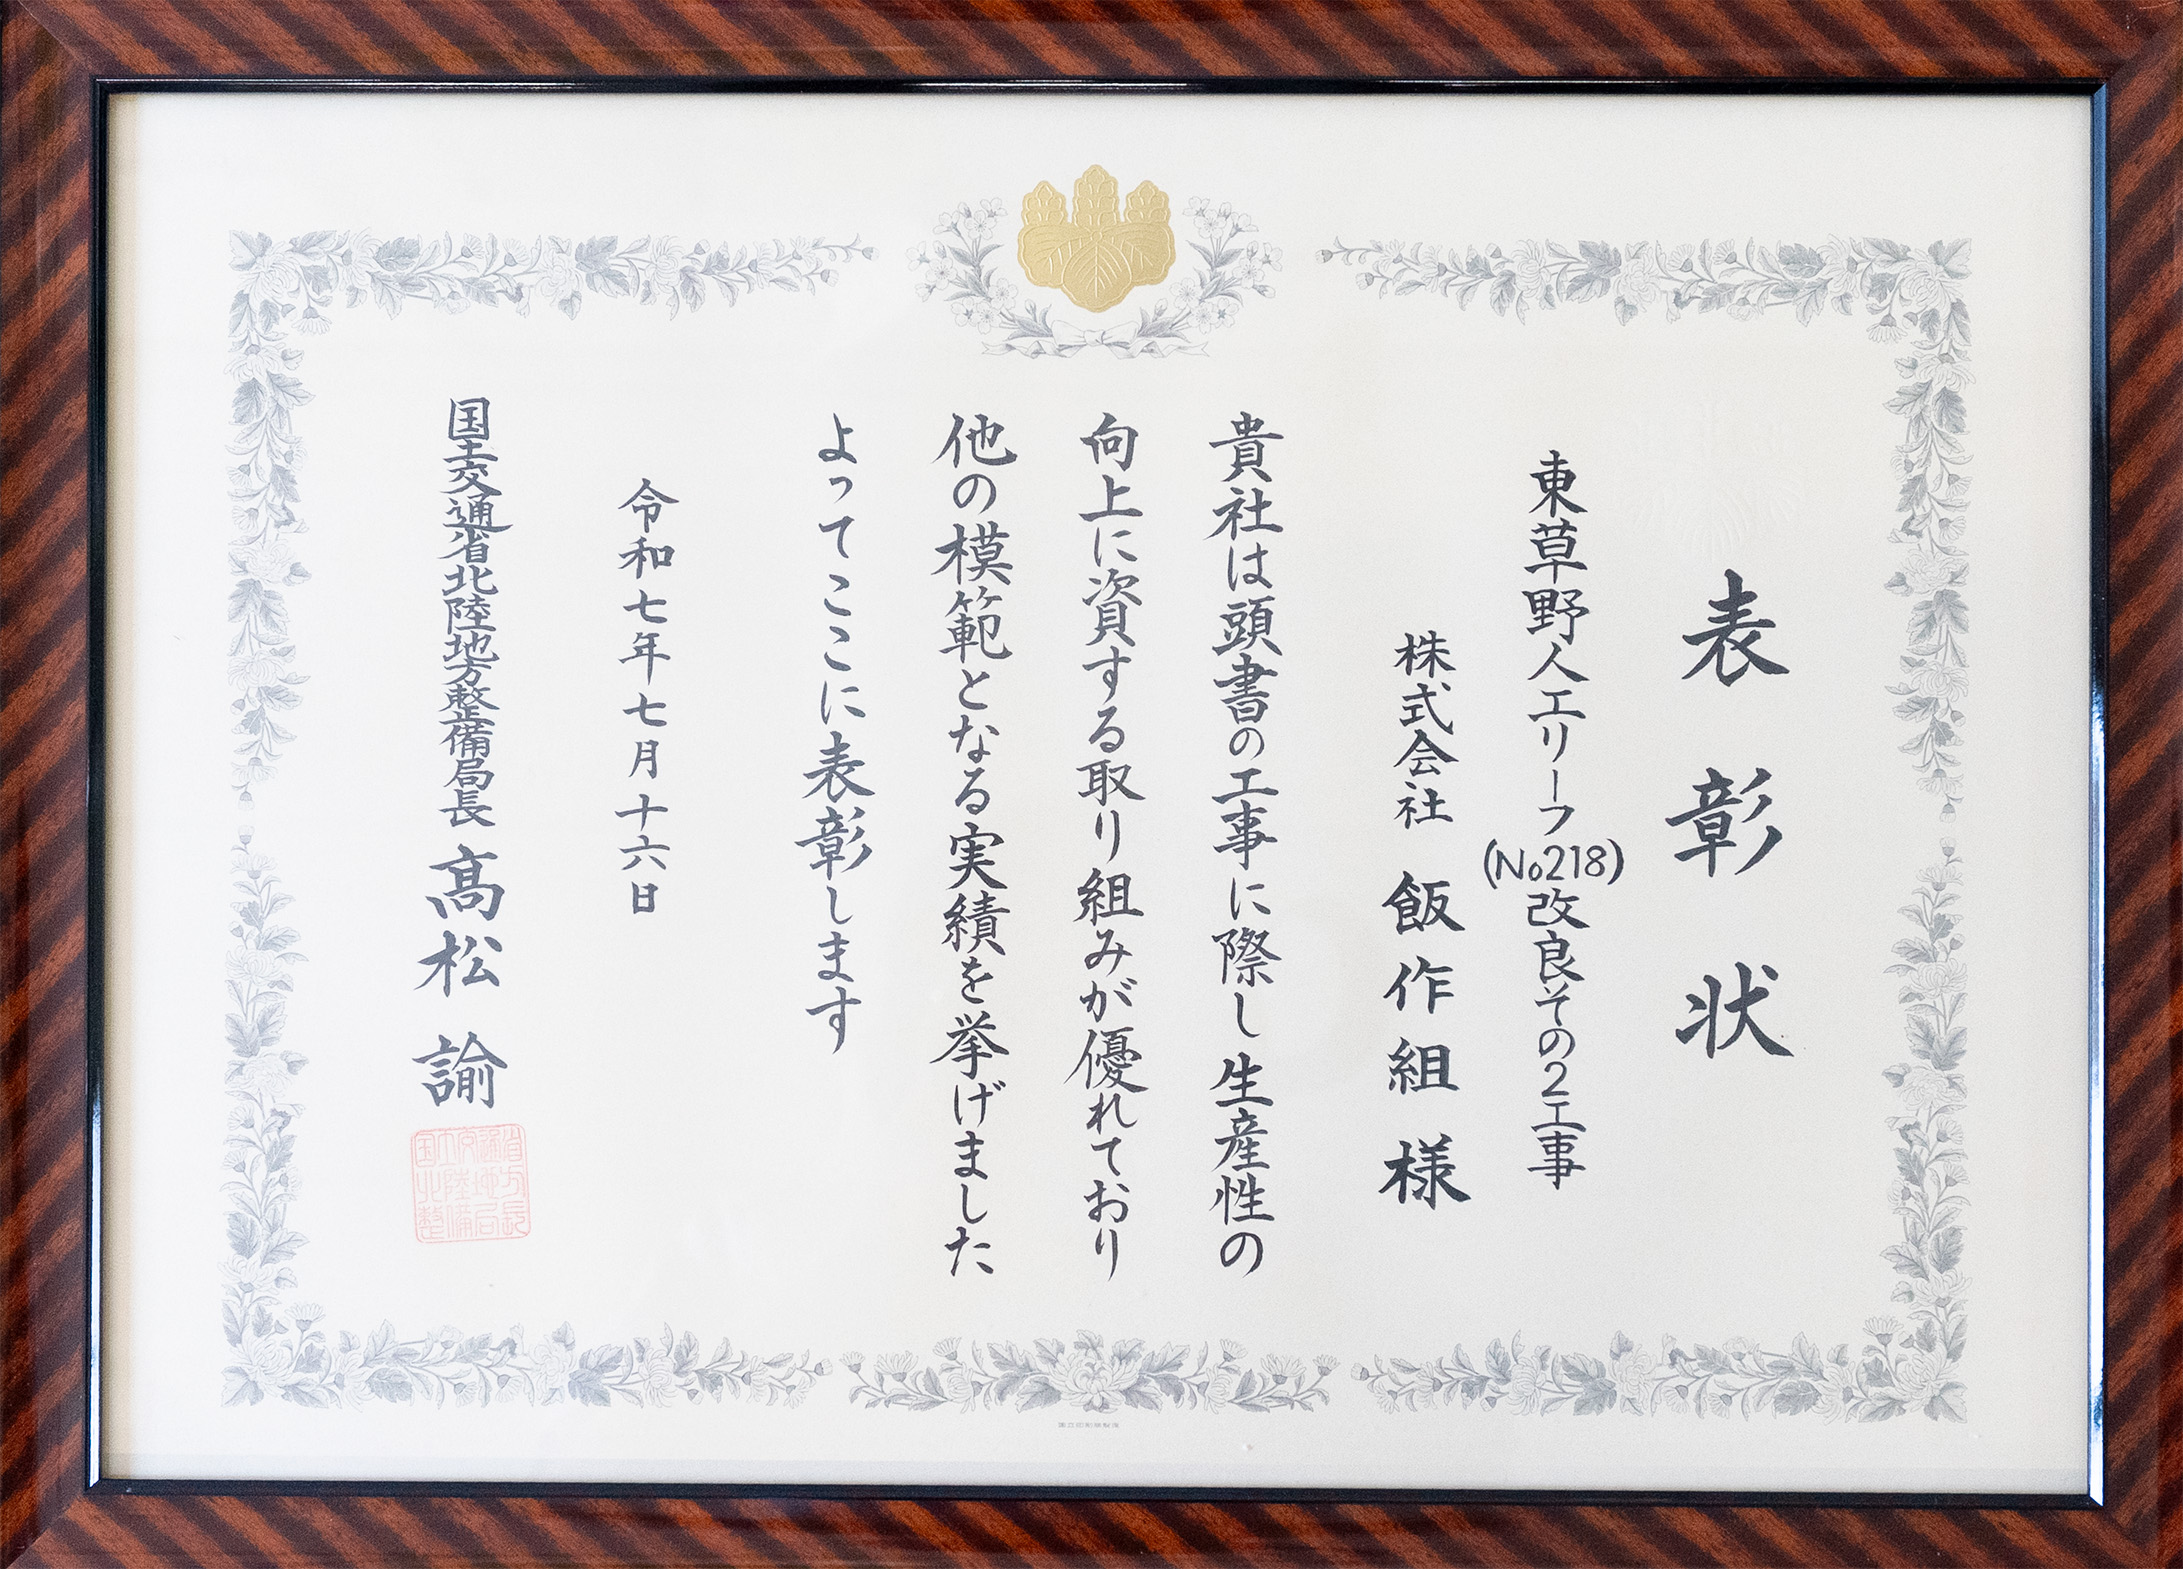 表彰状
東草野人工リーフ(No218)改良その2工事
株式会社 飯作組 様
貴社は頭書の工事に際し生産性の
向上に資する取り組みが優れており
他の模範となる実績を挙げました
よってここに表彰します
令和七年七月十六日
国土交通省北陸地方整備局長 髙松 諭